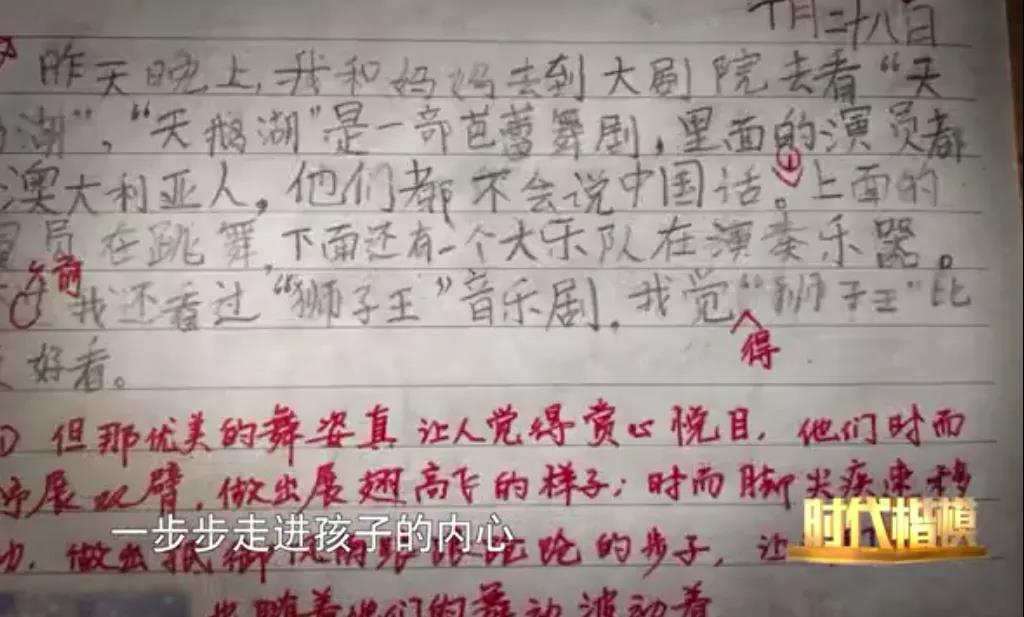 十月二十八日
昨天晚上,我和妈妈去到大剧院去看“天
湖”,“天鹅湖”是一部芭蕾舞剧,里面的演员都
澳大利亚人,他们都不会说中国话。上面的
①
员在跳舞,下面还有一个大乐队在演奏乐器。
前
我还看过“狮子王”音乐剧,我觉“狮子王”比
得
好看。
但那优美的舞姿真让人觉得赏心悦目,他们时而
展双臂,做出展翅高飞的样子;时而脚尖疾速移
动,做出 的步子,让
随着他们的舞动波动着
一步步走进孩子的内心
时代楷模